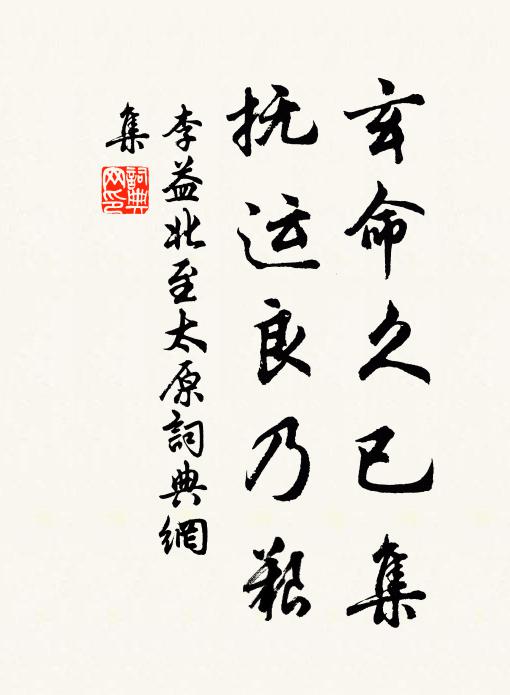 玄命久已集
抚运良乃艰
李益北至太原詞典網
集
詞典
网印